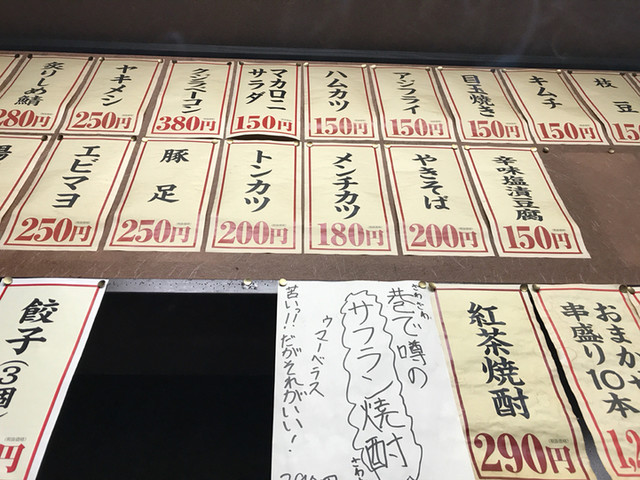 炙りしめ鯖
280円
ヤキメシ
250円
タンベーコン
380円
マカロニ
サラダ
150円
ハムカツ
150円
アジフライ
150円
目玉焼き
150円
キムチ
150円
枝豆
エビマヨ
250円
豚足
250円
トンカツ
200円
メンチカツ
180円
やきそば
200円
辛味塩漬豆腐
150円
餃子(3個)
円
巷で噂の
ざわざわ
サフラン焼酎
ざわ
ウマーベラス
苦い?!だがそれがいい!
紅茶焼酎
290円
おまか
串盛り10本